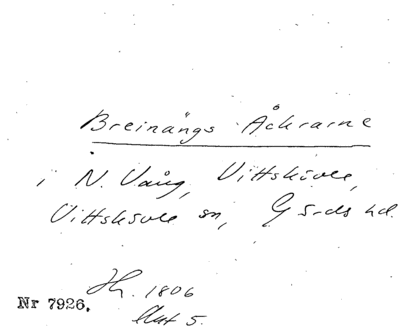 Breinängs Åkrarne
i N. Vång, Vittskövle,
Vittskövle sn, Gärds hd.
Nr 7926.
1806
Akt 5.